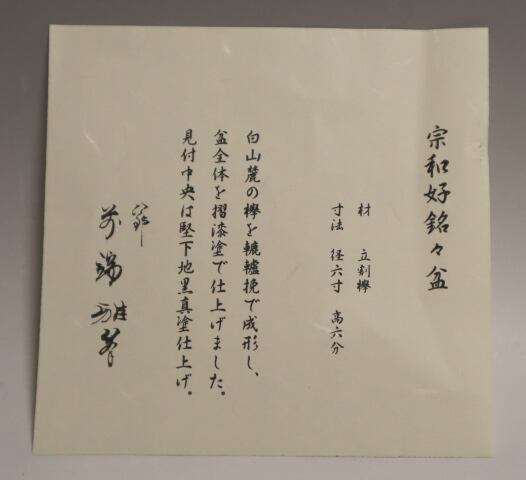 宗和好銘々盆
材 立割欅
寸法 径六寸 高六分
白山麓の欅を轆轤挽で成形し、
盆全体を摺漆塗で仕上げました。
見付中央は堅下地黒真塗仕上げ。
前端雅峯